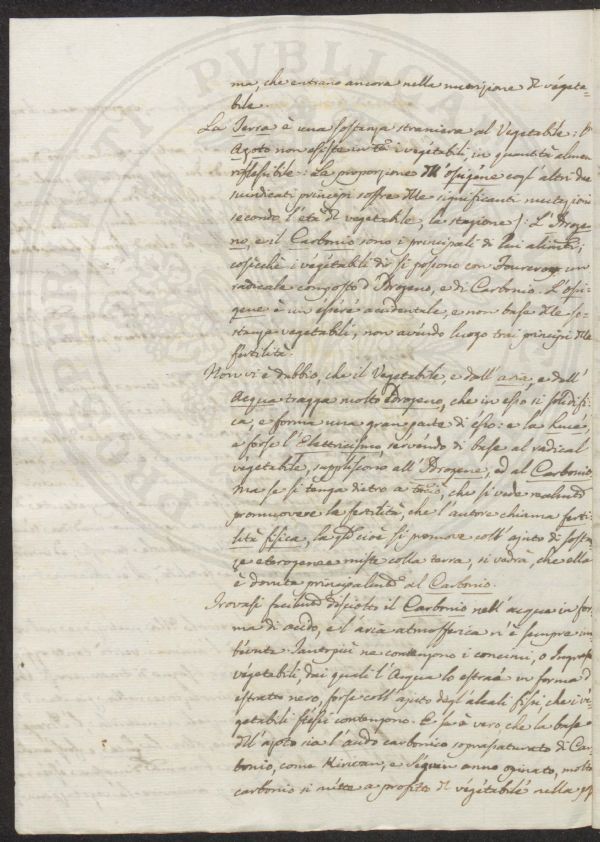 ma, che entrano ancora nella nutrizione del végeta=
bile.
La Terra è una sostanza straniera al Vegetabile: l'
Azoto non esiste in tti i vegetabili, in quantità almen
riflessibile: La proporzione dell'ossigene cogl'altri due
sudicati principj soffre delle significanti mutazioni
secondo l'età del vegetabile, la stagione: L'Idroge
no, e il Carbonio sono i principali di lui alimti,
cosicchè i végétabili dir si possono con Fourcroy un
radicale composto d'Idrogeno, e di Carbonio. L'ossi
gene è un éssere accidentale, e non base delle so-
stanze vegetabili, non avéndo luogo trai principj della
fertilità.
Non vi è dubbio, che il Vegetabile, e dall'aria, e dall'
Acqua tragga molto Idrogeno, che in esso si solidifi
ca, e forma una gran parte di ésso: e la Lucé,
e forse l'Elettricismo, servéndo di base al radical
végetabile, suppliscono all'Idrogene, ed al Carbonio.
Ma se si ténga dietro a ciò, che si vede realmte
promuovere la fertilità, che l'autore chiama ferti
lità fisica, la qle cioè si promove coll'ajuto di sostan
ze eterogenee miste colla terra, si vedrà, che ella
è dovuta principalmte al Carbonio.
Trovasi facilmte disciolto il Carbonio nell'acqua in for
ma di acido, e l'aria atmosferica n'è sempre im
bevuta. Tantopiù ne contengono i concimi, o Ingrassi
végetabili, dai quali l'Acqua lo estrae in forma d'
estratto nero, forse coll'ajuto degl'alcali fissi, che i vé
getabili stéssi contengono. E se è vero che la base
dell'azoto sia l'acido carbonico soprasaturato di Car
bonio, come Kirwan, e Séguin anno opinato, molto
carbonio si métte a profitto del végétabilé nella